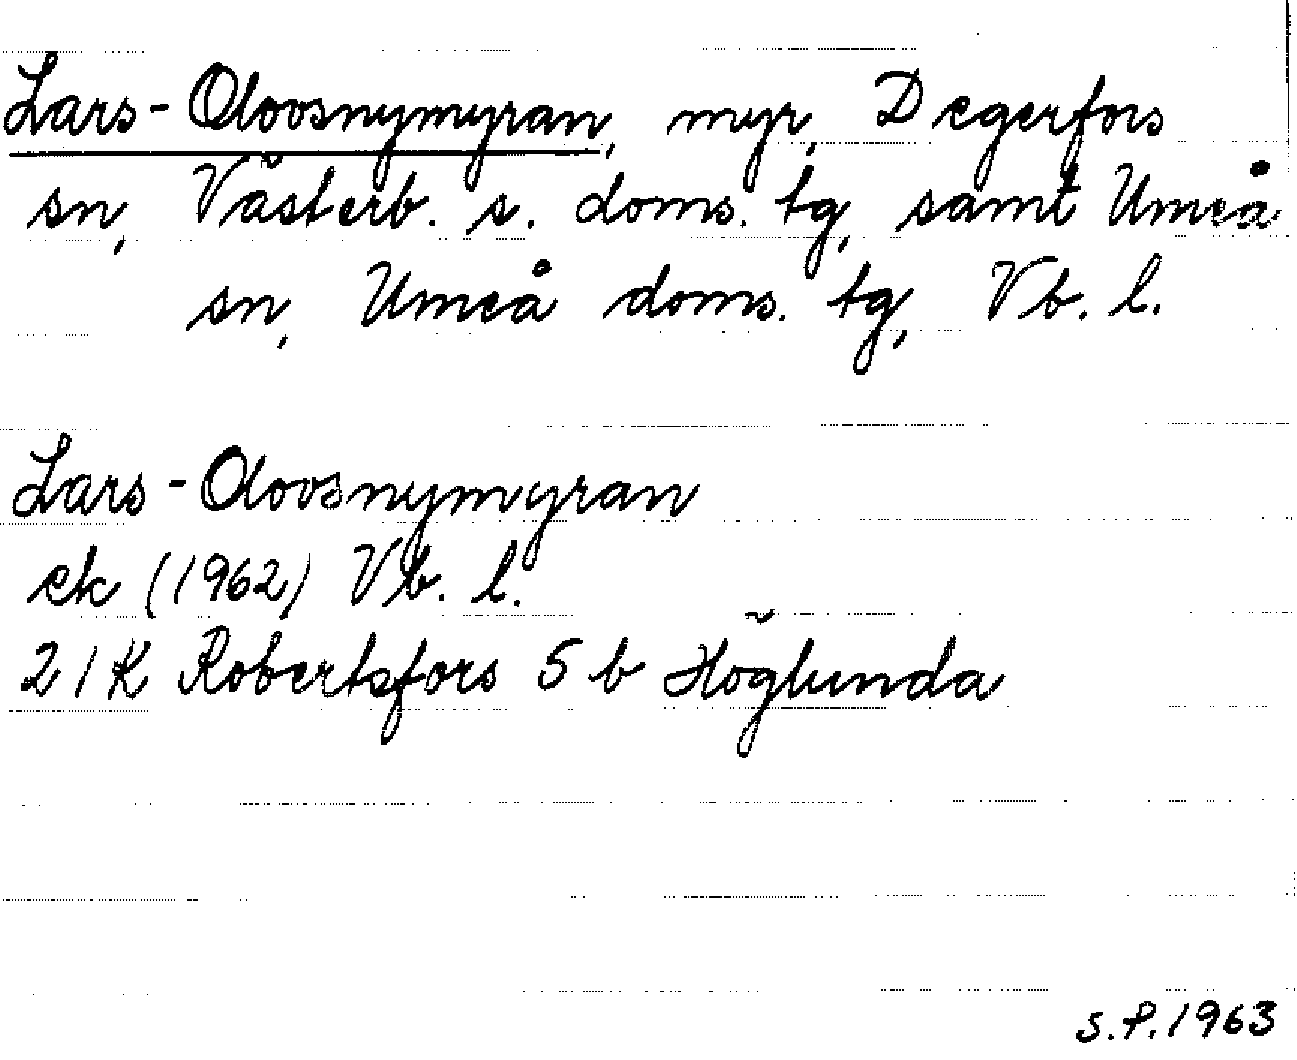 Lars-Olovsnymyran, myr, Degerfors
sn, Västerb. s. doms. tg, samt Umeå
sn, Umeå doms. tg, Vb. l.
Lars-Olovsnymyran
ek (1962) Vb. l.
21K Robertsfors 5 b Höglunda
S.P. 1963